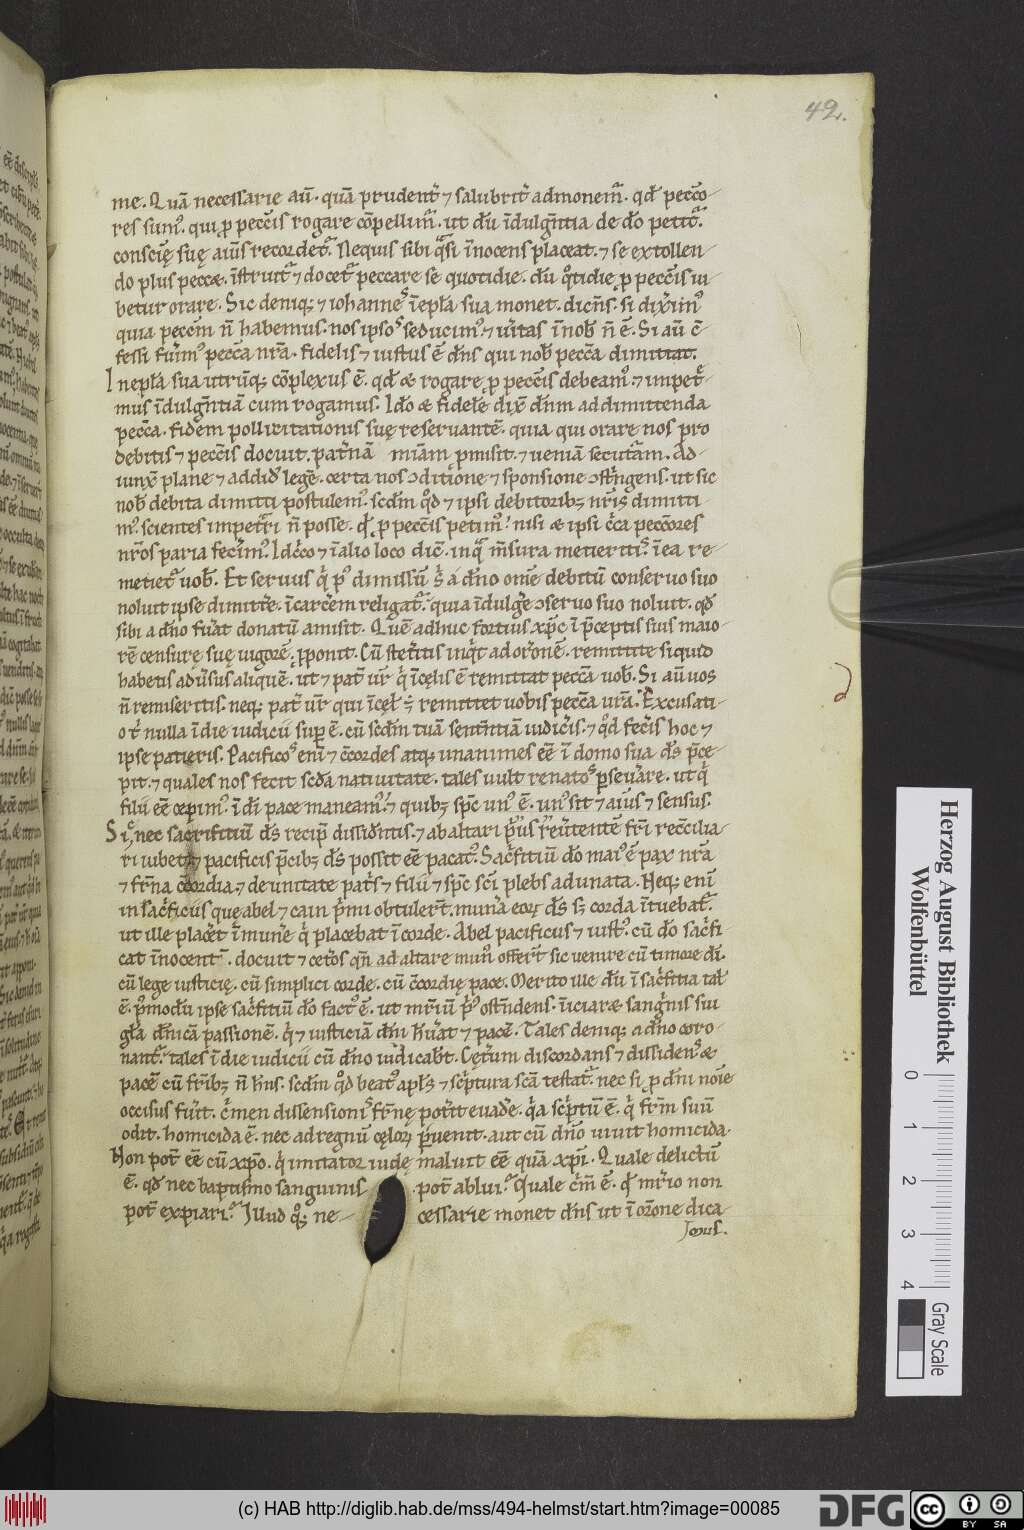 42.
me. Quā necessarie aū. quā prudent̄ ⁊ salubrit̄ admonem̄. qd̄ pecc̄o
res sum᷒. qui ꝓ pecc̄is rogare cōpellim̄. ut dū īdulḡntia de dō petit̄.
conscię suę aīus recordet̄. Nequis sibi q̄si īnocens placeat. ⁊ se extollen
do plus peccæ. īstruit̄ ⁊ docet̄ peccare se quotidie. dū q̊tidie ꝓ pecc̄is iu
betur orare. Sic deniq; ⁊ iohannes īepl̄a sua monet. dicn̄s. si dixim᷒
quia pecc̄m n̄ habemus. nos ipsos seducim᷒ ⁊ ūitas īnob̄ n̄ ē. Si aū c̄
fessi fūim᷒ pecc̄a nr̄a. fidelis ⁊ iustus ē dn̄s qui nob̄ pecc̄a dimittat.
Inepl̄a sua utrūq; cōplexus ē. qd̄ æ rogare ꝓ pecc̄is debeam᷒. ⁊ impet̄
mus īdulḡntiā cum rogamus. Idō æ fidelē dix̄ dn̄m addimittenda
pecc̄a. fidem pollicitationis suę reservantē. quia qui orare nos pro
debitis ⁊ pecc̄is docuit. pat̄nā miām ꝓmisit. ⁊ ueniā secutūam. Ad
iunx̄ plane ⁊ addid̄ legē. certa nos ↄditione ⁊ sponsione ↄstⁱngens. ut sic
nob̄ debita dimitti postulem᷒. scdm̄ qd̄ ⁊ ipsi debitorib; nr̄is dimitti
m᷒. scientes impet̄ri n̄ posse. qd̄ ꝓ pecc̄is petim᷒. nisi æ ipsi cⁱca pecc̄ores
nr̄os paria fecim᷒. Idcⁱco ⁊ īalio loco dic̄. inq̄ m̄sura metieritis. īea re
metiet̄ uob̄. Et seruus qⁱ p᷒ dimissū s̄ a dn̄o om̄e debitū conseruo suo
noluit ipse dimitt̄e. īcarc̄em religat̄. quia īdulḡe ↄseruo suo noluit. qd̄
sibi a dn̄o fūat donatū amisit. Quē adhuc fortius xp̄c ī p̄ceptis suis maio
rē censurę suę uigorē ꝓponit. Cū stet̄itis inqⁱt ad or̄onē. remittite siquid
habetis adūsus aliquē. ut ⁊ pat̄ ur̄ qⁱ īcęlis ē remittat pecc̄a uob̄. Si aū uos
n̄ remiseritis. neq; pat̄ ur̄ qui īcęl̄ ē remittet uobis pecc̄a ur̄a. Excusati
o t̄ nulla īdie iudicii sup̄ ē. cū scdm̄ tuā sent̄ntiā iudic̄is. ⁊ qd̄ fec̄is hoc ⁊
ipse patieris. Pacificos enī ⁊ c̄cordes atq; unanimes eē ī domo sua dˢ p̄ce
pit. ⁊ quales nos fecit scd̄a natiuitate. tales uult renatos p̱seūare. ut qⁱ
filii eē cepim᷒. ī dī pace maneam᷒. ⁊ quib; sp̄c un᷒ ē. un᷒ sit ⁊ aīus ⁊ sensus.
Sic nec sacrifitiū dˢ recip̄ dissid̄tis. ⁊ abaltari p̄us reūtentē fr̄i recc̄ilia
ri iubet. ⁊ pacificis p̄cib; dˢ possit eē pacat᷒. Sacⁱfitiū dō mai᷒ ē pax nr̄a
⁊ fr̄na c̄cordia. ⁊ de unitate patⁱs ⁊ filii ⁊ sp̄c sc̄i plebs adunata. Neq; enī
in sacⁱficiis que abel ⁊ cain pⁱmi obtuler̄t. mun̄a eoꝝ dˢ s; corda ītuebat̄.
ut ille plac̄et ī mun̄e qⁱ placebat ī corde. Abel pacificus ⁊ iust᷒. cū dō sacⁱfi
cat īnocent̄. docuit ⁊ cet̄os qn̄ ad altare mun᷒ offerr̄t sic uenire cū timore dī.
cū lege iusticię. cū simplici corde. cū c̄cordię pace. Merito ille dū ī sacⁱfitia tal̄
ē. p̄modū ipse sacⁱfitiū dō fact᷒ ē. ut mr̄iū pⁱ᷒ ostn̄dens. īiciaræ sangⁱnis sui
gl̄a dn̄icā passionē. qⁱ ⁊ iusticiā dn̄i hūat ⁊ pacē. Tales deniq; a dn̄o coro
nant̄. tales ī die iudicii cū dn̄o iudicab̄t. Cęt̄um discordans ⁊ dissidens æ
pacē cū fr̄ib; n̄ hn̄s. scdm̄ qd̄ beat᷒ apl̄s ⁊ scⁱptura sc̄a testat̄. nec si ꝓ dn̄i noīe
occisus fūit. cⁱmen dissensionis fr̄nę pot̄it euad̄e. qⁱa scⁱptū ē. qⁱ fr̄m suū
odit. homicida ē. nec ad regnū cęloꝝ p̱uenit. aut cū dn̄o uiuit homicida.
Non pot̄ eē cū xp̄o. qⁱ imitator iudę maluit eē quā xp̄i. Quale delictū
ē. qd̄ nec baptismo sanguinis pot̄ ablui. Quale cⁱm̄ ē. qd̄ mr̄io non
pot̄ expiari. Illud qq; ne cessarie monet dn̄s ut ī or̄one dica
mus.
Herzog August Bibliothek
Wolfenbüttel
0
1
2
3
4
Gray Scale
(c) HAB http://diglib.hab.de/mss/494-helmst/start.htm?image=00085
DFG
cc
BY SA